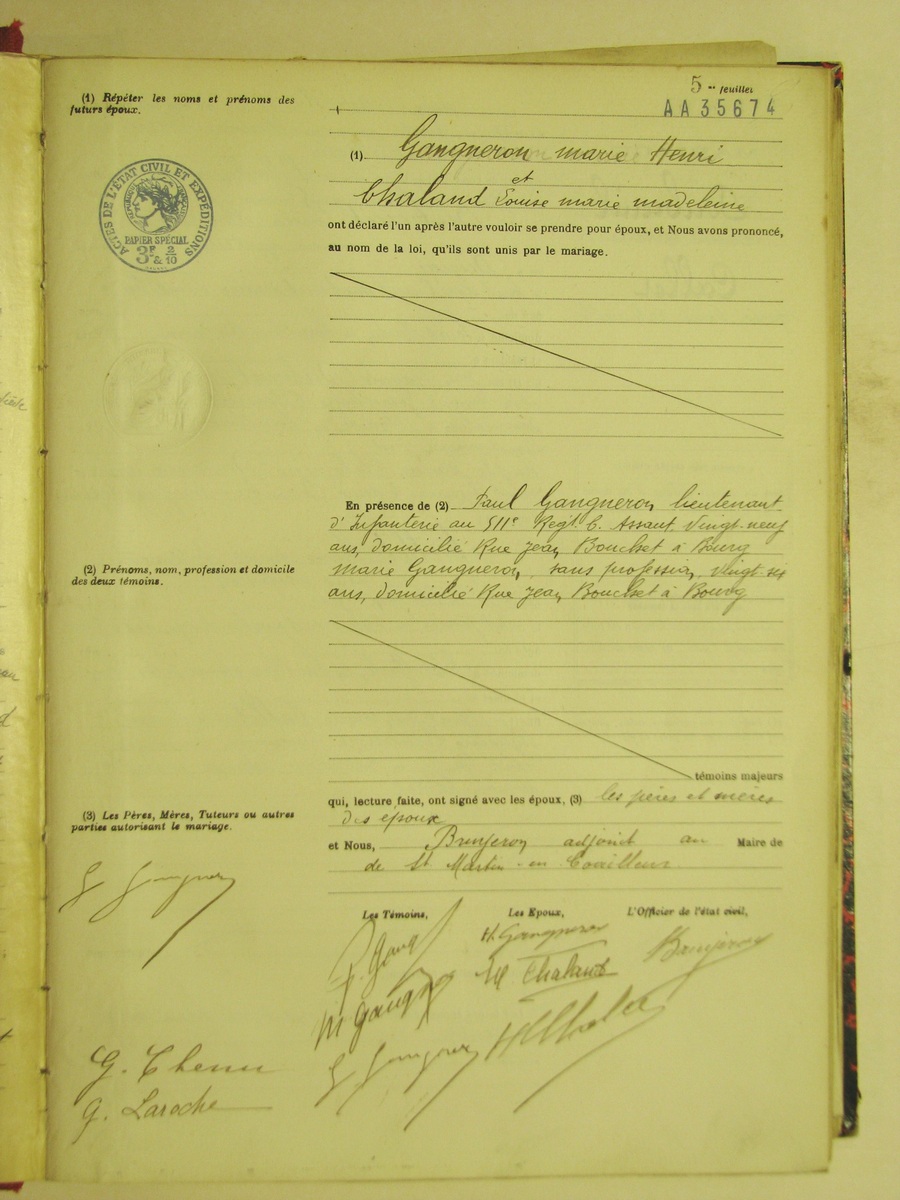 5 me feuillet
AA 35674
(1) Répéter les noms et prénoms des
futurs époux.
(1) Gangneron marie Henri
et
Chaland Louise marie madeleine
ont déclaré l'un après l'autre vouloir se prendre pour époux, et Nous avons prononcé,
au nom de la loi, qu'ils sont unis par le mariage.
ACTES DE L'ÉTAT CIVIL ET EXPÉDITIONS
PAPIER SPÉCIAL
3F & 2/10
En présence de (2) Paul Gangneron lieutenant
d'Infanterie au 511e Régt C. Assaut, vingt-neuf
ans, domicilié Rue Jean Bouchet à Bourg
marie Gangneron, sans profession, vingt-six
ans, domicilié Rue Jean Bouchet à Bourg
(2) Prénoms, nom, profession et domicile
des deux témoins.
témoins majeurs
qui, lecture faite, ont signé avec les époux, (3) les pères et mères
des époux
(3) Les Pères, Mères, Tuteurs ou autres
parties autorisant le mariage.
et Nous, Brujeron adjoint au Maire de
de St Martin-en-Coailleux
Les Témoins, Les Epoux, L'Officier de l'état civil,
P. Gang H. Gangneron Brujeron
M Gang Chaland
G. Chenu
G. Laroche